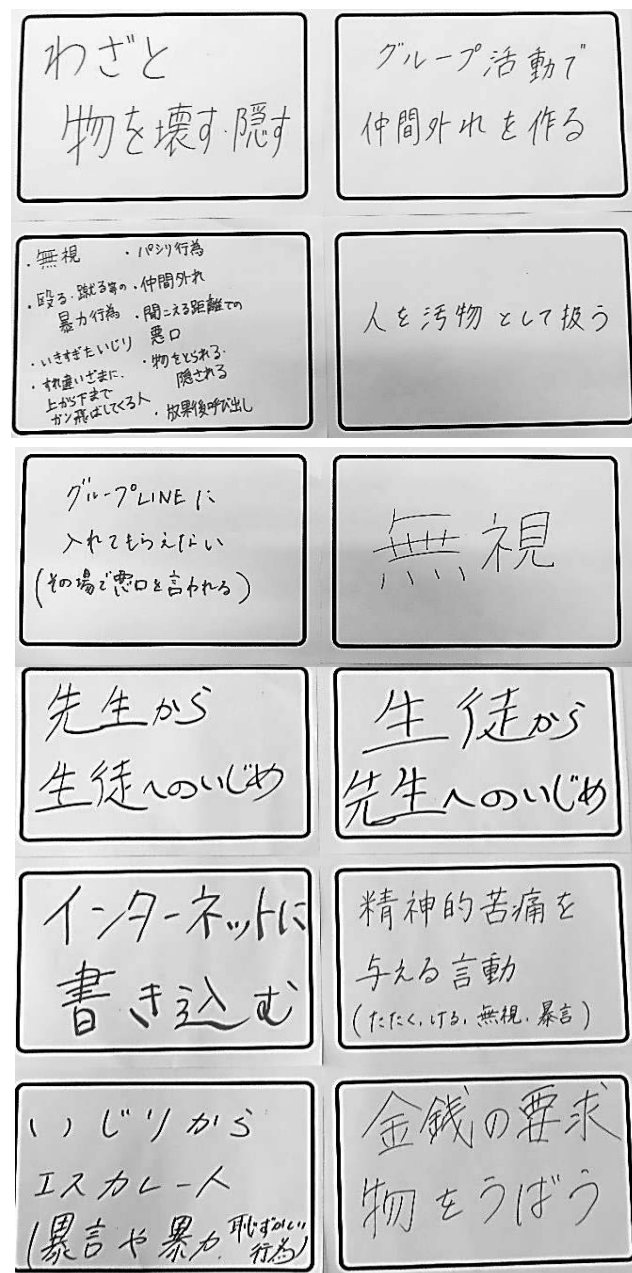 わざと
物を壊す・隠す
グループ活動で
仲間外れを作る
・無視
・殴る・蹴る等の
暴力行為
・いきすぎたいじり
・すれ違いざまに、
上から下まで
ガン飛ばしてくる人
・パシリ行為
・仲間外れ
・聞こえる距離での
悪口
・物をとられる・
隠される
・放課後呼び出し
人を汚物として扱う
グループLINEに
入れてもらえない
(その場で悪口を言われる)
無視
先生から
生徒へのいじめ
生徒から
先生へのいじめ
インターネットに
書き込む
精神的苦痛を
与える言動
(たたく、ける、無視、暴言)
いじりから
エスカレート
(暴言や暴力、恥ずかしい
行為)
金銭の要求
物をうばう